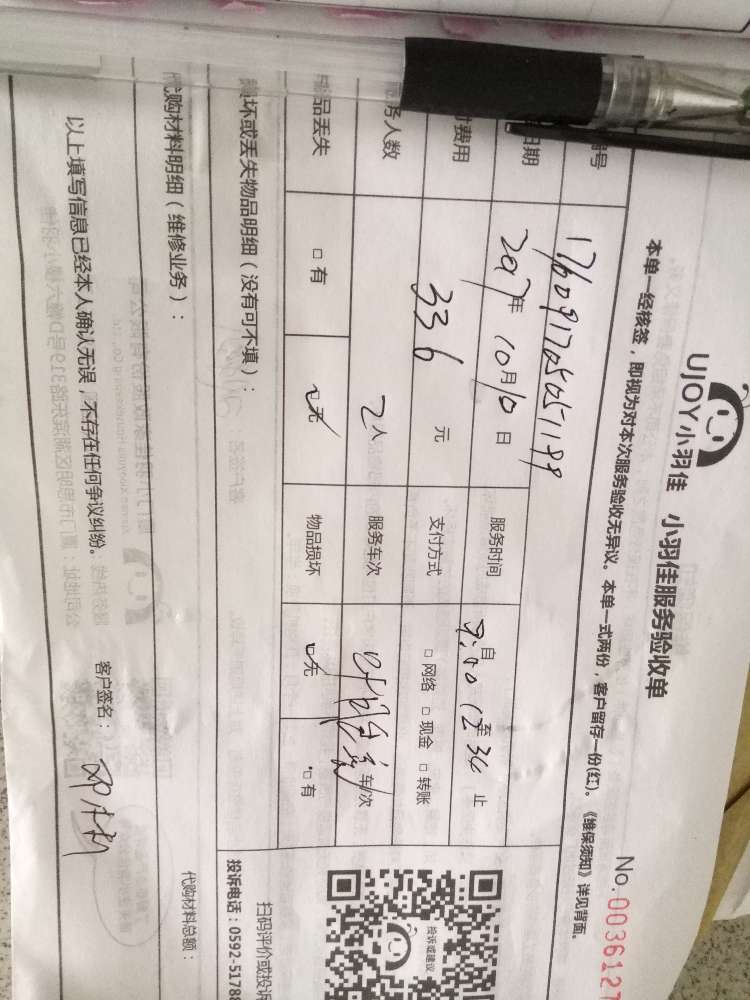 UJOY小羽佳 小羽佳服务验收单
No.0036127
本单一经核签，即视为对本次服务验收无异议。本单一式两份，客户留存一份(红)。《维保须知》详见背面。
号 176091705051199
日期 2017年 10月10日 服务时间 自 9:00 至 止
费用 336 元 支付方式 □网络 □现金 □转账
务人数 2人 服务车次 车次
品丢失 □有 □无 物品损坏 □无 □有
坏或丢失物品明细（没有可不填）：
代购材料明细（维修业务）：
代购材料总额：
以上填写信息已经本人确认无误，不存在任何争议纠纷。 客户签名：
投诉或建议
扫码评价或投诉
投诉电话：0592-51788